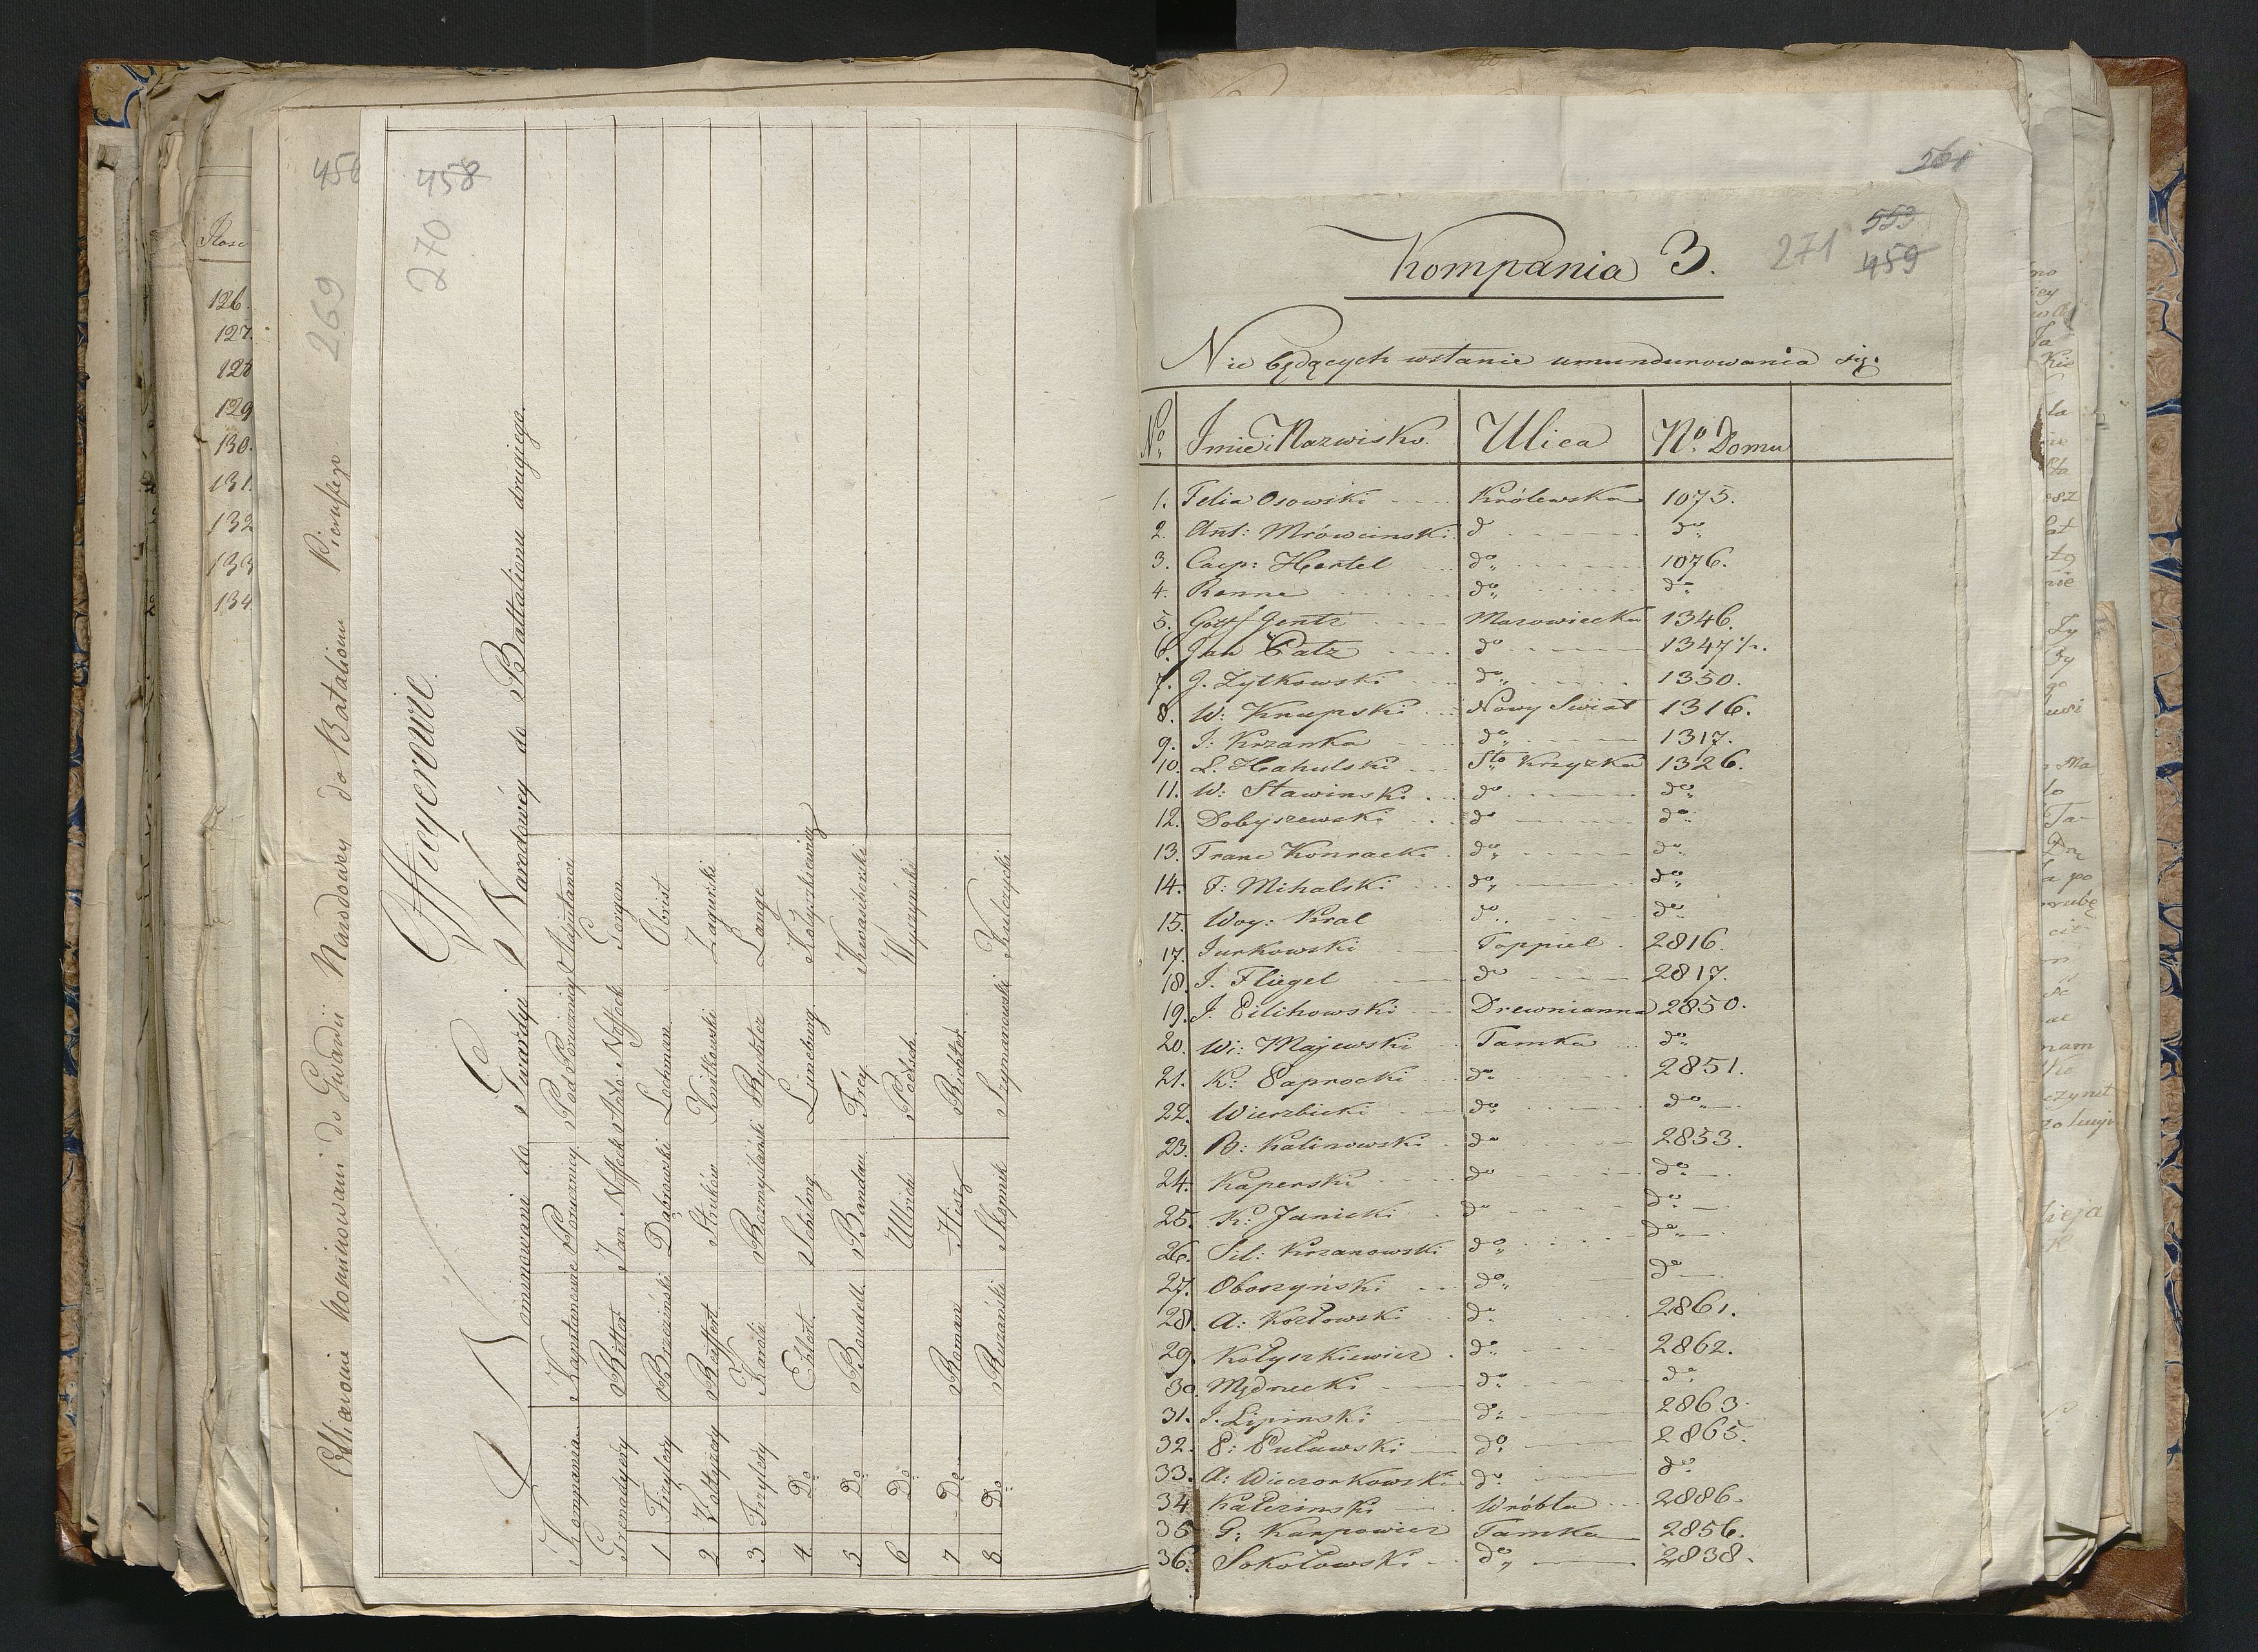 Rosc
126.
127.
128
129
130.
131.
132
133
134.
456
269
Officyerowie Nominowani do Gwardii Narodowey do Batalionu Pierwszego
458
270
Officyerowie
Nominowani do Gwardyi Narodowéy do Battalionu drugiego.
Kompania. Kapitanowie Porucznicy. Pod Porucznicy Adjutanci
Grenadyery Ritter Jan Neffeck Ando Neffeck Gorgon
1 Fizylery Brzeziński Dąbrowski Lochman Obrist
2 Voltyżery Reiffert Strukow Kwiatkowski Zagurski
3 Fizylery Karoli Rozmyślański Rychter Lange
4 Do Ehlert Schiling Lüneburg Kołyszkiewicz
5 Do Boudell Bandau Frey Kwasiborski
6 Do Ulrich Poetsch Wyszyński
7 Do Roman Hisz Richter
8 Do Ruzański Skopnik Szymanowski Kulczycki
261
553
459
271
Kompania 3.
Nie będących wstanie umundurowania się.
No Jmie i Nazwisko. Ulica No Domu
1. Felix Osowski Królewska 1075.
2. Ant: Mrówcinski d do
3. Casp: Hertel do 1076.
4. Renne do do
5. Gottf Gentz Mazowiecka 1346.
6. Jan Patz do 1347½.
7. J. Zytkowski do 1350.
8. W: Krupski Nowy Swiat 1316.
9. J: Krzanka do 1317.
10. L. Hahulski Sto Krzyzka 1326.
11. W: Stawinski do do
12. Dobyszewski do do
13. Franc Konracki do do
14. F: Mihalski do do
15. Woy: Kral do do
17. Jurkowski Toppiel 2816.
18. J. Fliegel do 2817.
19. J. Pilihowski Drewnianna 2850.
20. Wi: Majewski Tamka do
21. K: Paprocki do 2851.
22. Wierzbicki do do
23. B: Kalinowski do 2853.
24. Kaperski do do
25. K: Janicki do do
26. Sil: Krzanowski do do
27. Oboszyński do do
28. A: Kozłowski do 2861.
29. Kołyszkiewicz do 2862.
30. Mędrzecki do do
31. J. Lipinski do 2863.
32. P: Puławski do 2865.
33. A: Wieczorkowski do do
34 Kalezinski Wróbla 2886.
35 G: Karpowicz Tamka 2856.
36. Sokołowski do 2838.